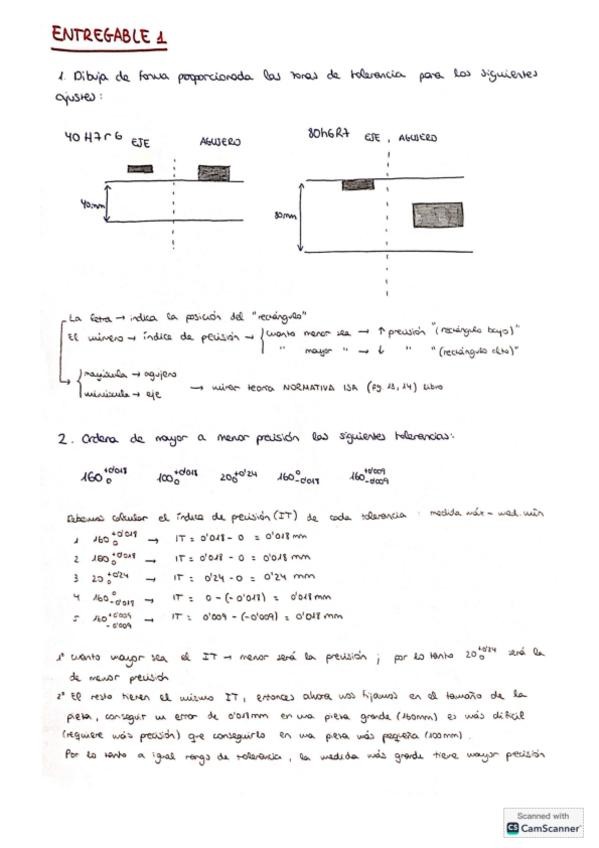 ENTREGABLE 1
1. Dibuja de forma proporcionada las zonas de tolerancia para los siguientes
ajustes:
40 H7 r 6 EJE AGUJERO 80h6R7 EJE AGUJERO
40mm
80mm
La letra → indica la posición del "rectángulo"
El número → índice de precisión → cuanto menor sea → ↑ precisión "(rectángulo bajo)"
" mayor " → ↓ " "(rectángulo alto)"
mayúscula → agujero
minúscula → eje
→ mirar teoria NORMATIVA ISA (pg 13, 14) Libro
2. Ordena de mayor a menor precisión las siguientes tolerancias:
160 +0'018 0 100 +0'018 0 20 +0'24 0 160 0 -0'018 160 +0'009 -0'009
Debemos calcular el índice de precisión (IT) de cada tolerancia : medida máx - med. mín
1 160 +0'018 0 → IT = 0'018 - 0 = 0'018 mm
2 100 +0'018 0 → IT = 0'018 - 0 = 0'018 mm
3 20 +0'24 0 → IT = 0'24 - 0 = 0'24 mm
4 160 0 -0'018 → IT = 0 - (-0'018) = 0'018 mm
5 160 +0'009 -0'009 → IT = 0'009 - (-0'009) = 0'018 mm
1º cuanto mayor sea el IT → menor será la precisión ; por lo tanto 20 +0'24 0 será la
de menor precisión
2º El resto tienen el mismo IT, entonces ahora nos fijamos en el tamaño de la
pieza, conseguir un error de 0'018mm en una pieza grande (160mm) es más difícil
(requiere más precisión) que conseguirlo en una pieza más pequeña (100mm).
Por lo tanto a igual rango de tolerancia, la medida más grande tiene mayor precisión
Scanned with
CS CamScanner